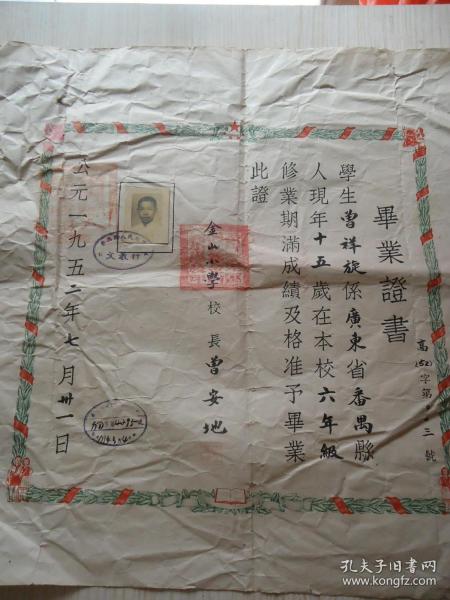 畢業證書
高(52)字第 三號
學生曾祥旋係廣東省番禺縣
人現年十五歲在本校六年級
修業期滿成績及格准予畢業
此證
金山小學校長曾安地
公元一九五二年七月卅一日
孔夫子旧书网
www.kongfz.com